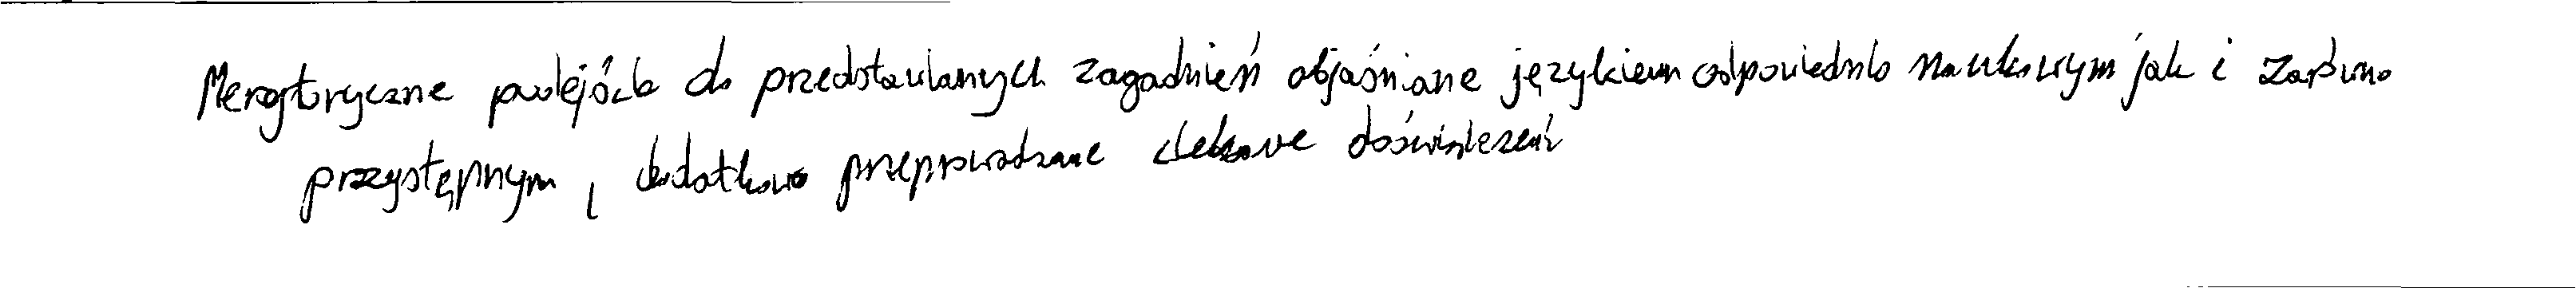 Merytoryczne podejście do przedstawianych zagadnień objaśniane językiem odpowiednio naukowym jak i zarówno
przystępnym, dodatkowo przeprowadzane ciekawe doświadczeń